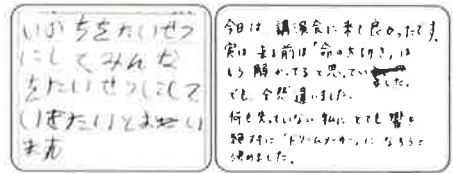 いのちをたいせつ
にしてみんな
をたいせつにして
いきたいとおもい
ます
今日は講演会に来て良かったです。
実は来る前は「命の大切さ」は
もう解かってると思っていました。
でも、全然違いました。
何も失っていない私にとても響き
絶対に「ドリームメーカー」になろうと
決めました。